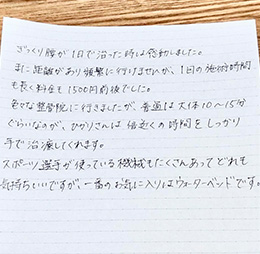 ぎっくり腰が1日で治った時は感動しました。
また距離があり頻繁に行けませんが、1回の施術時間
も長く料金も1500円前後でした。
色々な整骨院に行きましたが、普通は大体10〜15分
ぐらいなのが、ひかりさんは倍近くの時間をしっかり
手で治療してくれます。
スポーツ選手が使っている機械もたくさんあってどれも
気持ちいいですが、一番のお気に入りはウォーターベッドです。